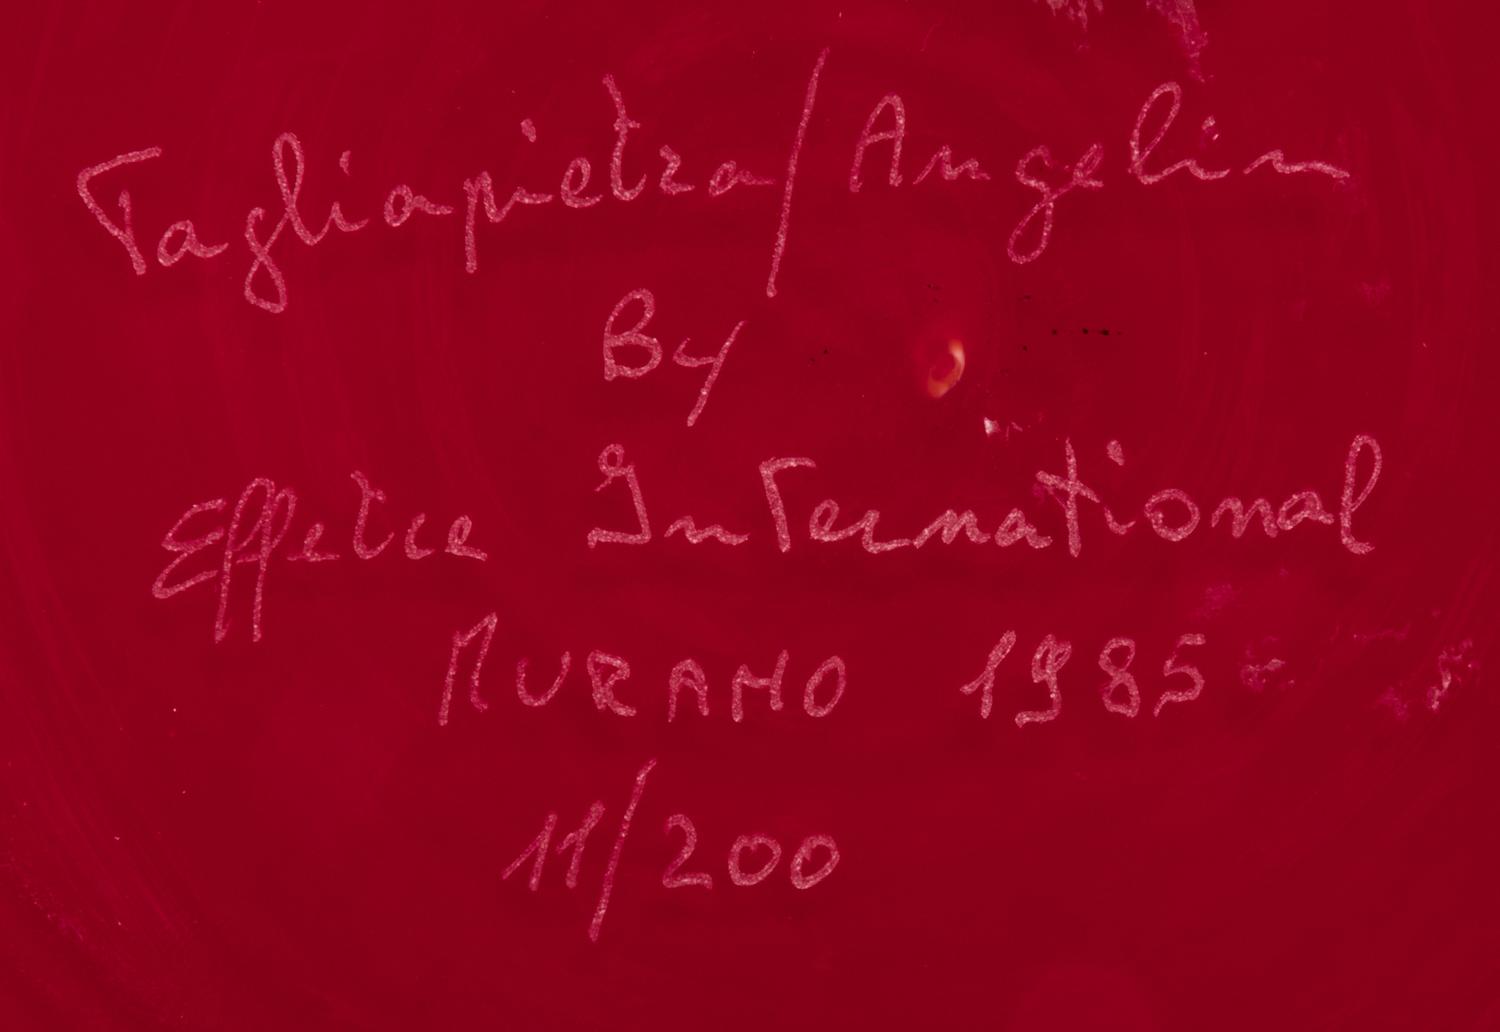 Tagliapietra/Angelin
By
Effetre International
MURANO 1985
11/200